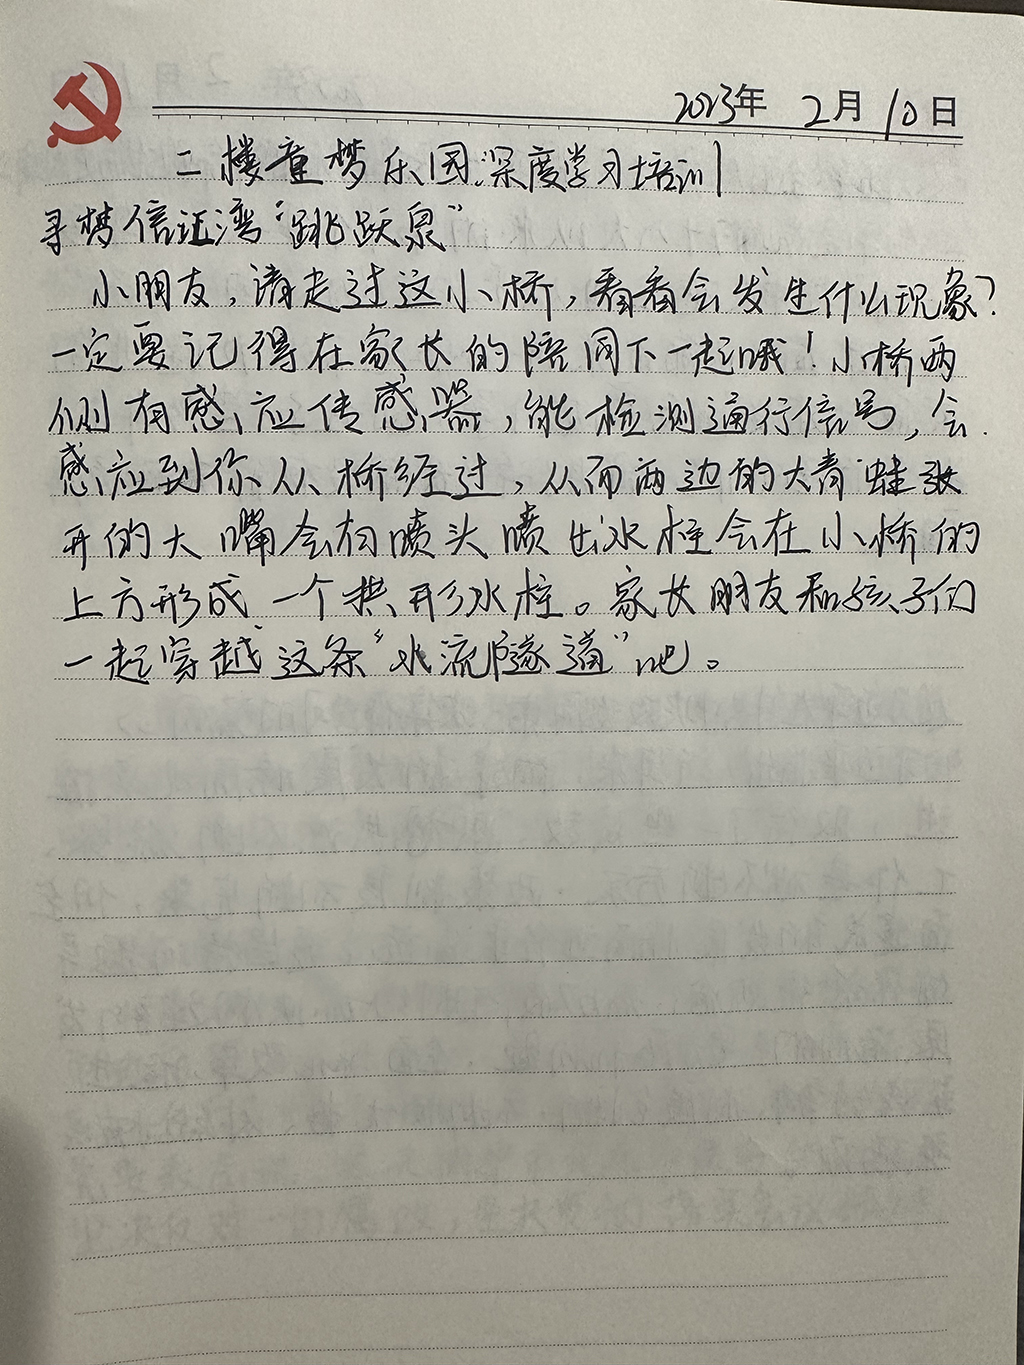 2023年 2月10日
二楼童梦乐园深度学习培训
寻梦信江湾“跳跃泉”
小朋友,请走过这小桥,看看会发生什么现象?
一定要记得在家长的陪同下一起哦!小桥两
侧有感应传感器,能检测通行信号,会
感应到你从桥经过,从而两边的大青蛙张
开的大嘴会有喷头喷出水柱会在小桥的
上方形成一个拱形水柱。家长朋友和孩子们
一起穿越这条“水流隧道”吧。